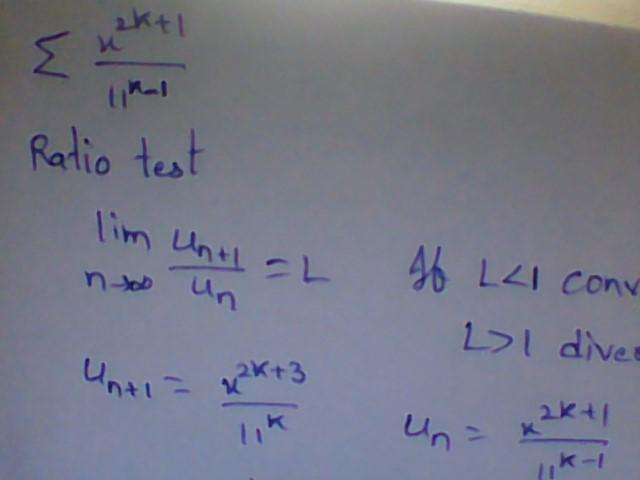 Σ x^{2k+1} / 11^{k-1}
Ratio test
lim n→∞ u_{n+1} / u_n = L If L<1 conv
L>1 dive
u_{n+1} = x^{2k+3} / 11^k
u_n = x^{2k+1} / 11^{k-1}